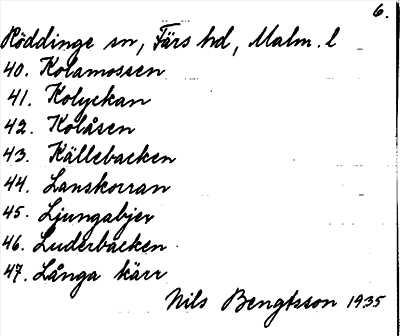 6.
Röddinge sn, Färs hd, Malm. l
40. Kolamossen
41. Kolyckan
42. Kolåsen
43. Källebacken
44. Lanskorran
45. Ljungabjer
46. Luderbacken
47. Långa kärr
Nils Bengtsson 1935